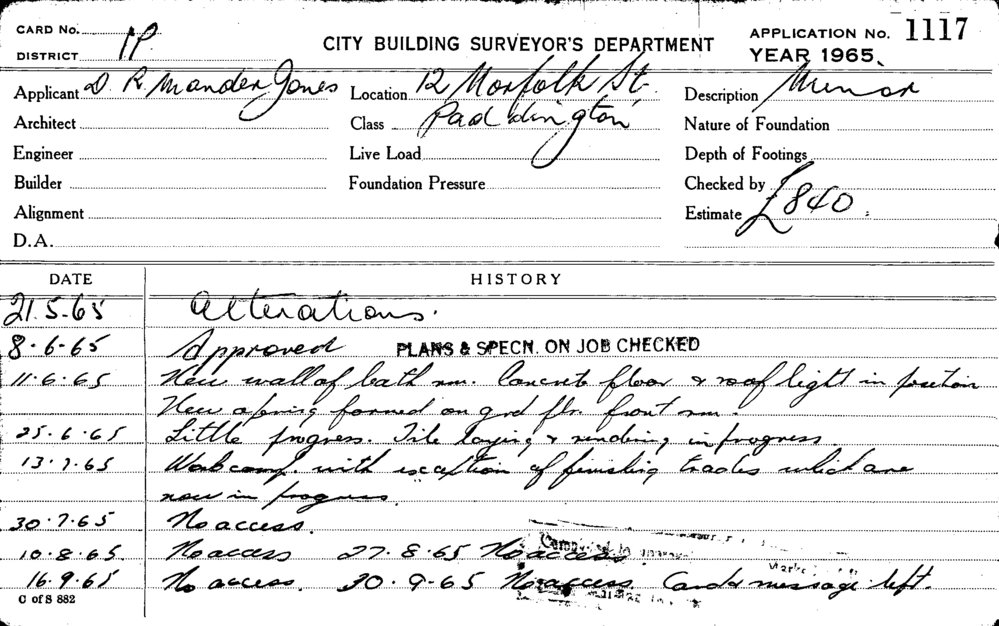 CARD No.
DISTRICT 1P
CITY BUILDING SURVEYOR'S DEPARTMENT
APPLICATION No. 1117
YEAR 1965.
Applicant D. R. Mander Jones
Location 12 Norfolk St.
Description Minor
Architect
Class Paddington
Nature of Foundation
Engineer
Live Load
Depth of Footings
Builder
Foundation Pressure
Checked by
Alignment
Estimate £840.
D.A.
DATE HISTORY
21.5.65 Alterations.
8.6.65 Approved PLANS & SPECN. ON JOB CHECKED
11.6.65 New wall of bath rm. Concrete floor & roof light in position
New opening formed on grd flr. front rm.
25.6.65 Little progress. Tile laying & rendering in progress.
13.7.65 Work comp. with exception of finishing trades which are
now in progress.
30.7.65 No access.
10.8.65. No access 27.8.65 No access.
16.9.65 No access. 30.9.65 No access. Card & message left.
C of S 882